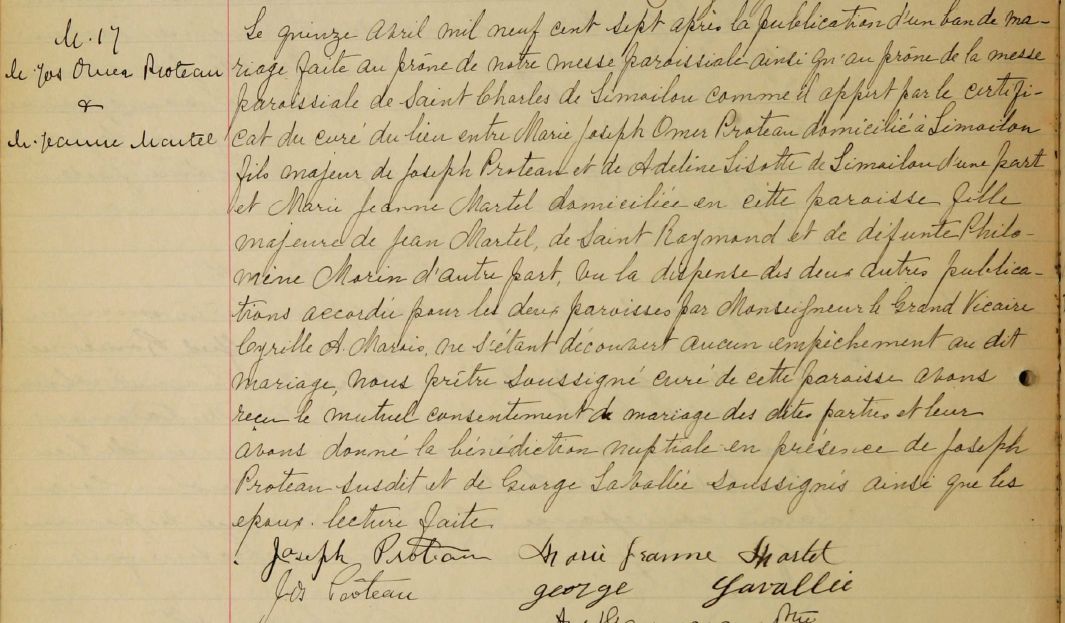 M. 17
M. Jos Omer Proteau
&
M. Jeanne Martel
Le quinze Avril mil neuf cent sept après la publication d'un ban de ma-
riage faite au prône de notre messe paroissiale ainsi qu'au prône de la messe
paroissiale de Saint Charles de Limoilou comme il appert par le certifi-
cat du curé du lieu entre Marie Joseph Omer Proteau domicilié à Limoilou
fils majeur de Joseph Proteau et de Adeline Lisotte de Limoilou d'une part
et Marie Jeanne Martel domiciliée en cette paroisse fille
majeure de Jean Martel, de Saint Raymond et de défunte Philo-
mène Morin d'autre part, Vu la dispense des deux autres publica-
tions accordée pour les deux paroisses par Monseigneur le Grand Vicaire
Cyrille A. Marois, ne s'étant découvert aucun empêchement au dit
mariage, nous prêtre soussigné curé de cette paroisse avons
reçu le mutuel consentement de mariage des dites parties et leur
avons donné la bénédiction nuptiale en présence de Joseph
Proteau susdit et de George Lavallée soussignés ainsi que les
epoux. lecture faite
Joseph Proteau Marie Jeanne Martel
Jos Proteau george Lavallée
ptre